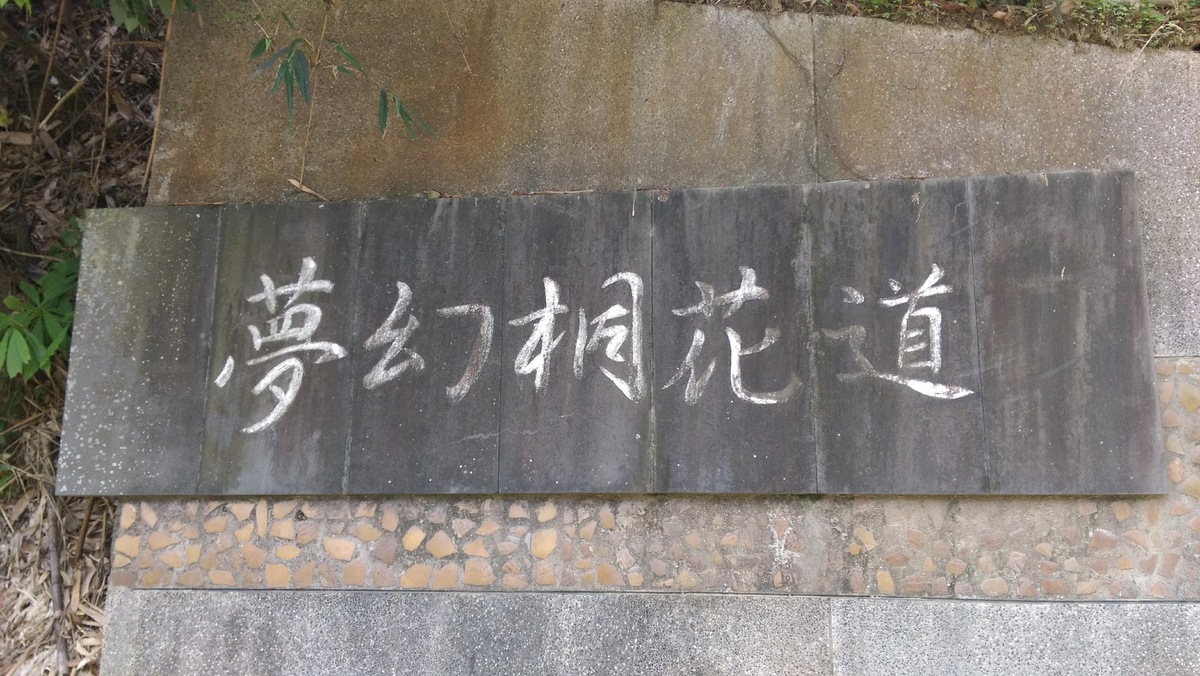 夢幻桐花道